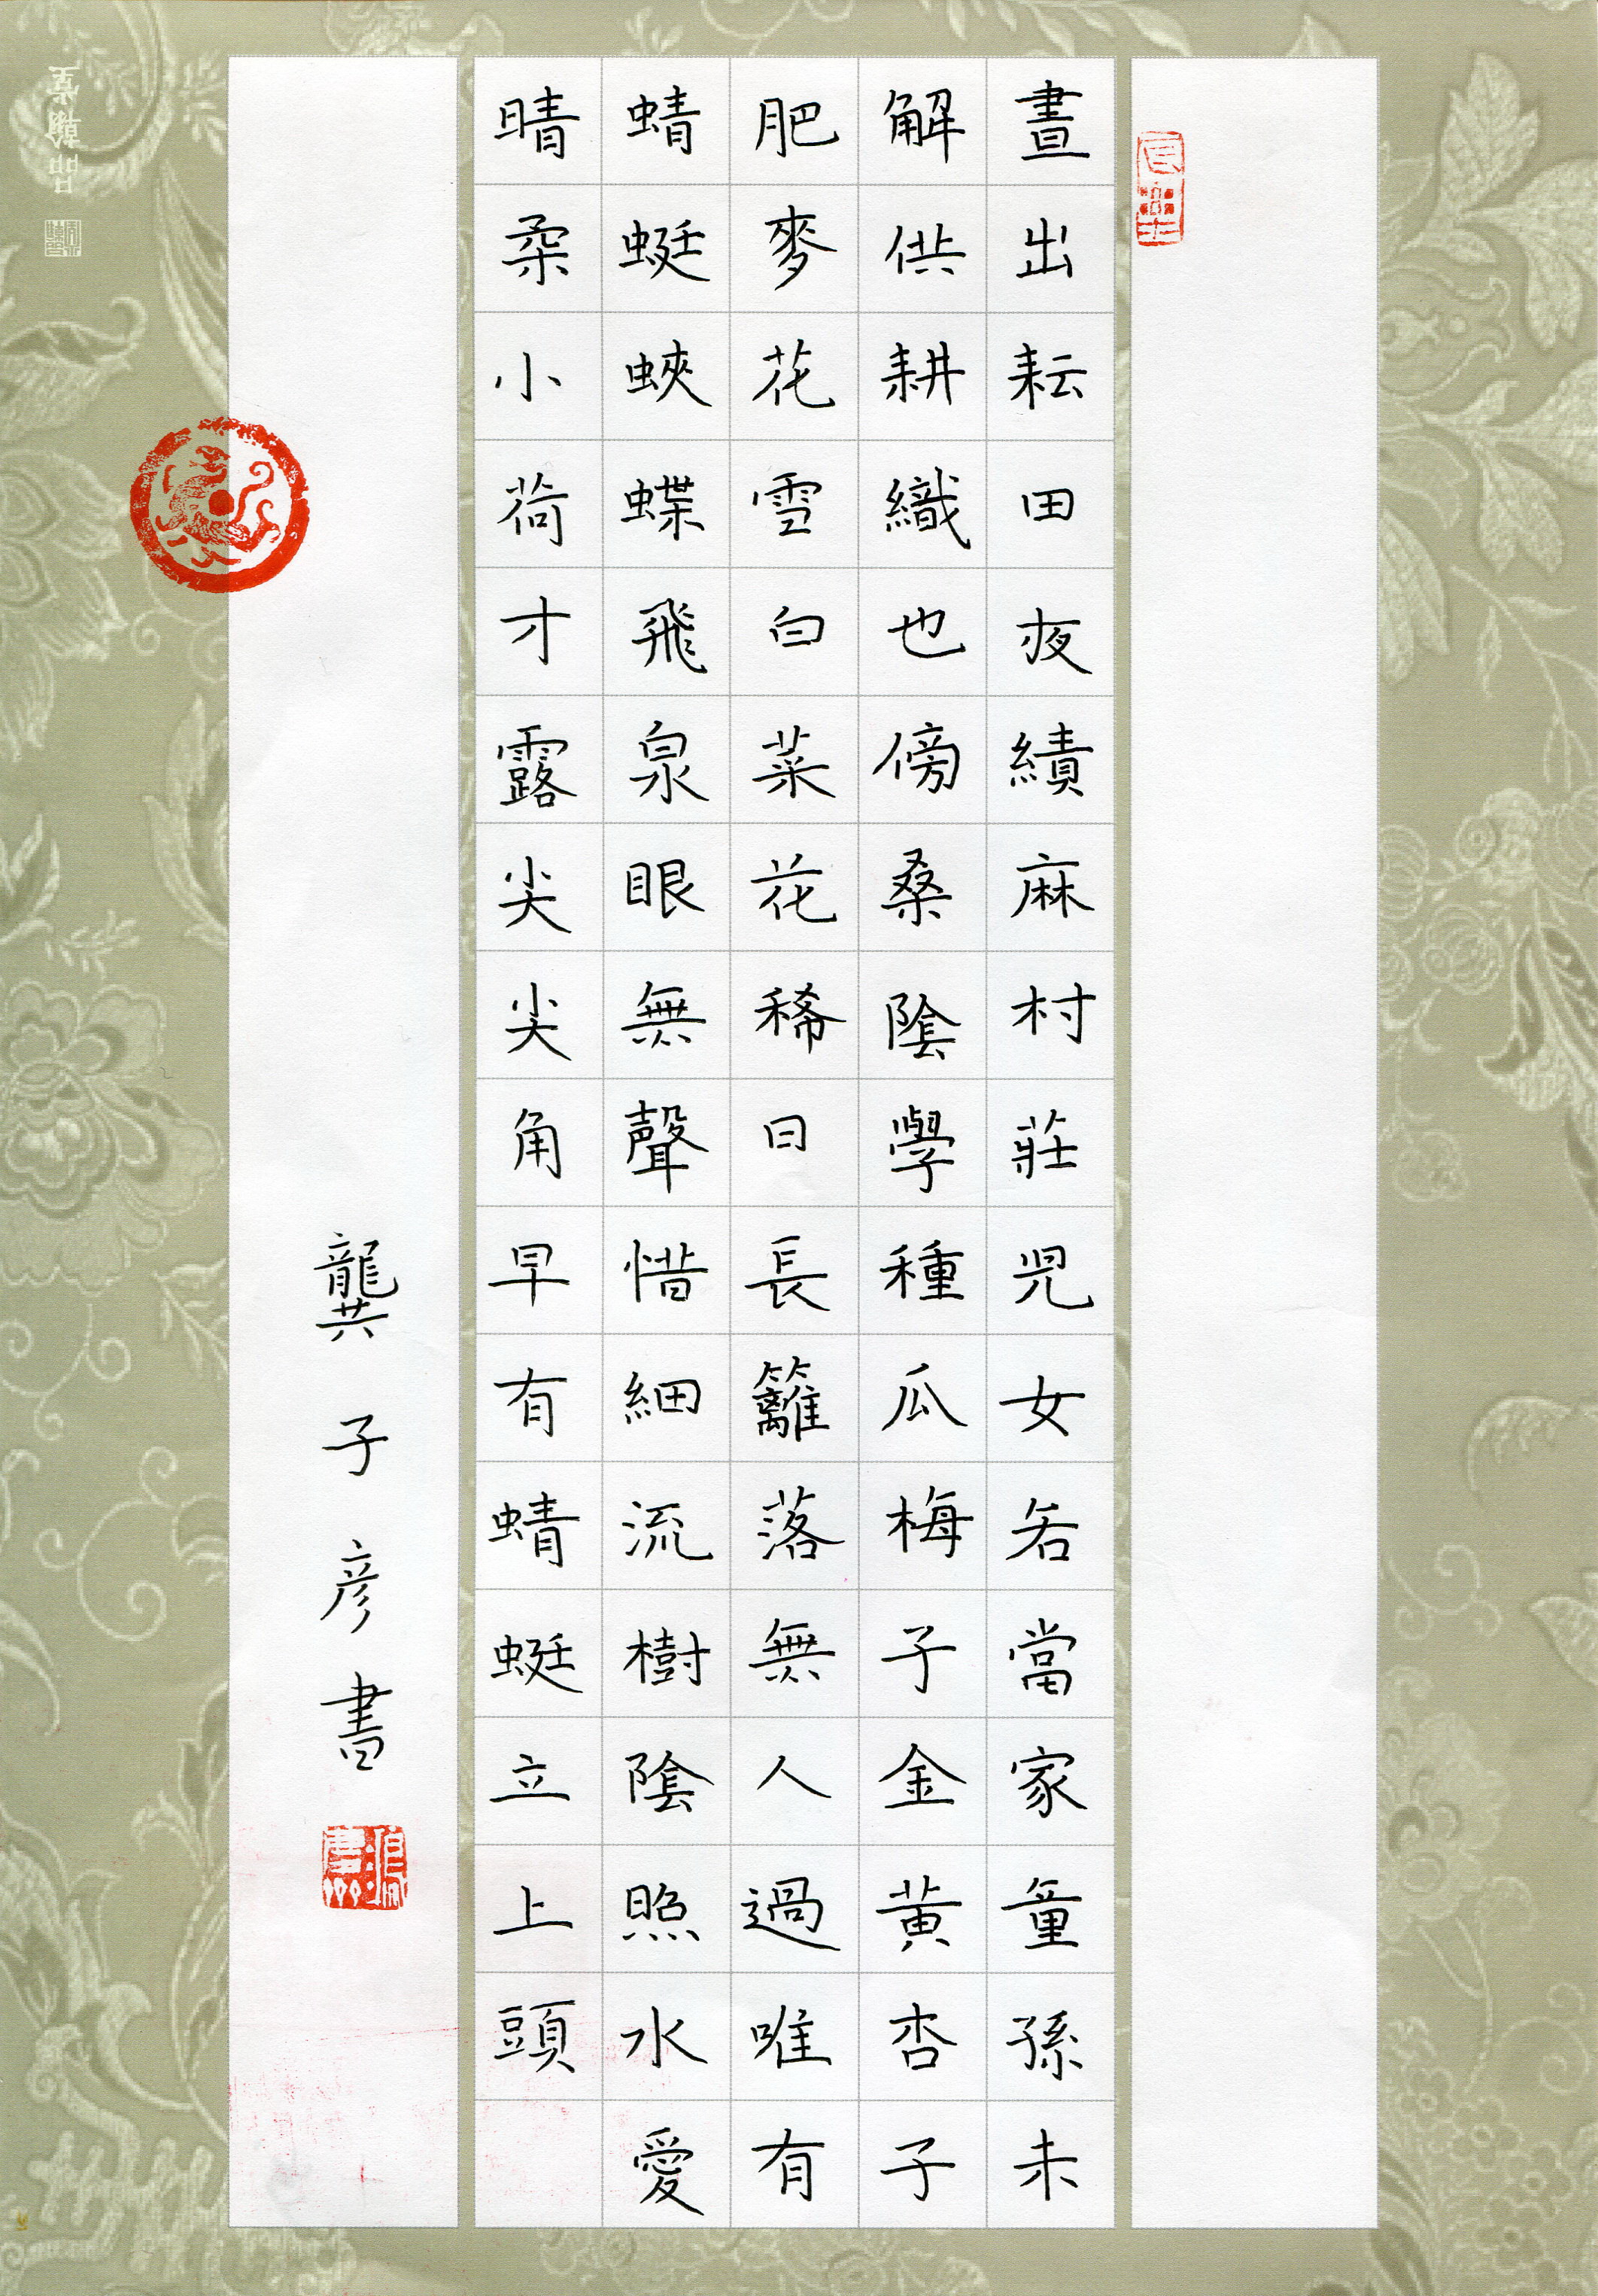 晝出耘田夜績麻村莊兒女各當家童孫未
解供耕織也傍桑陰學種瓜梅子金黃杏子
肥麥花雪白菜花稀日長籬落無人過唯有
蜻蜓蛺蝶飛泉眼無聲惜細流樹陰照水愛
晴柔小荷才露尖尖角早有蜻蜓立上頭
龔子彥書